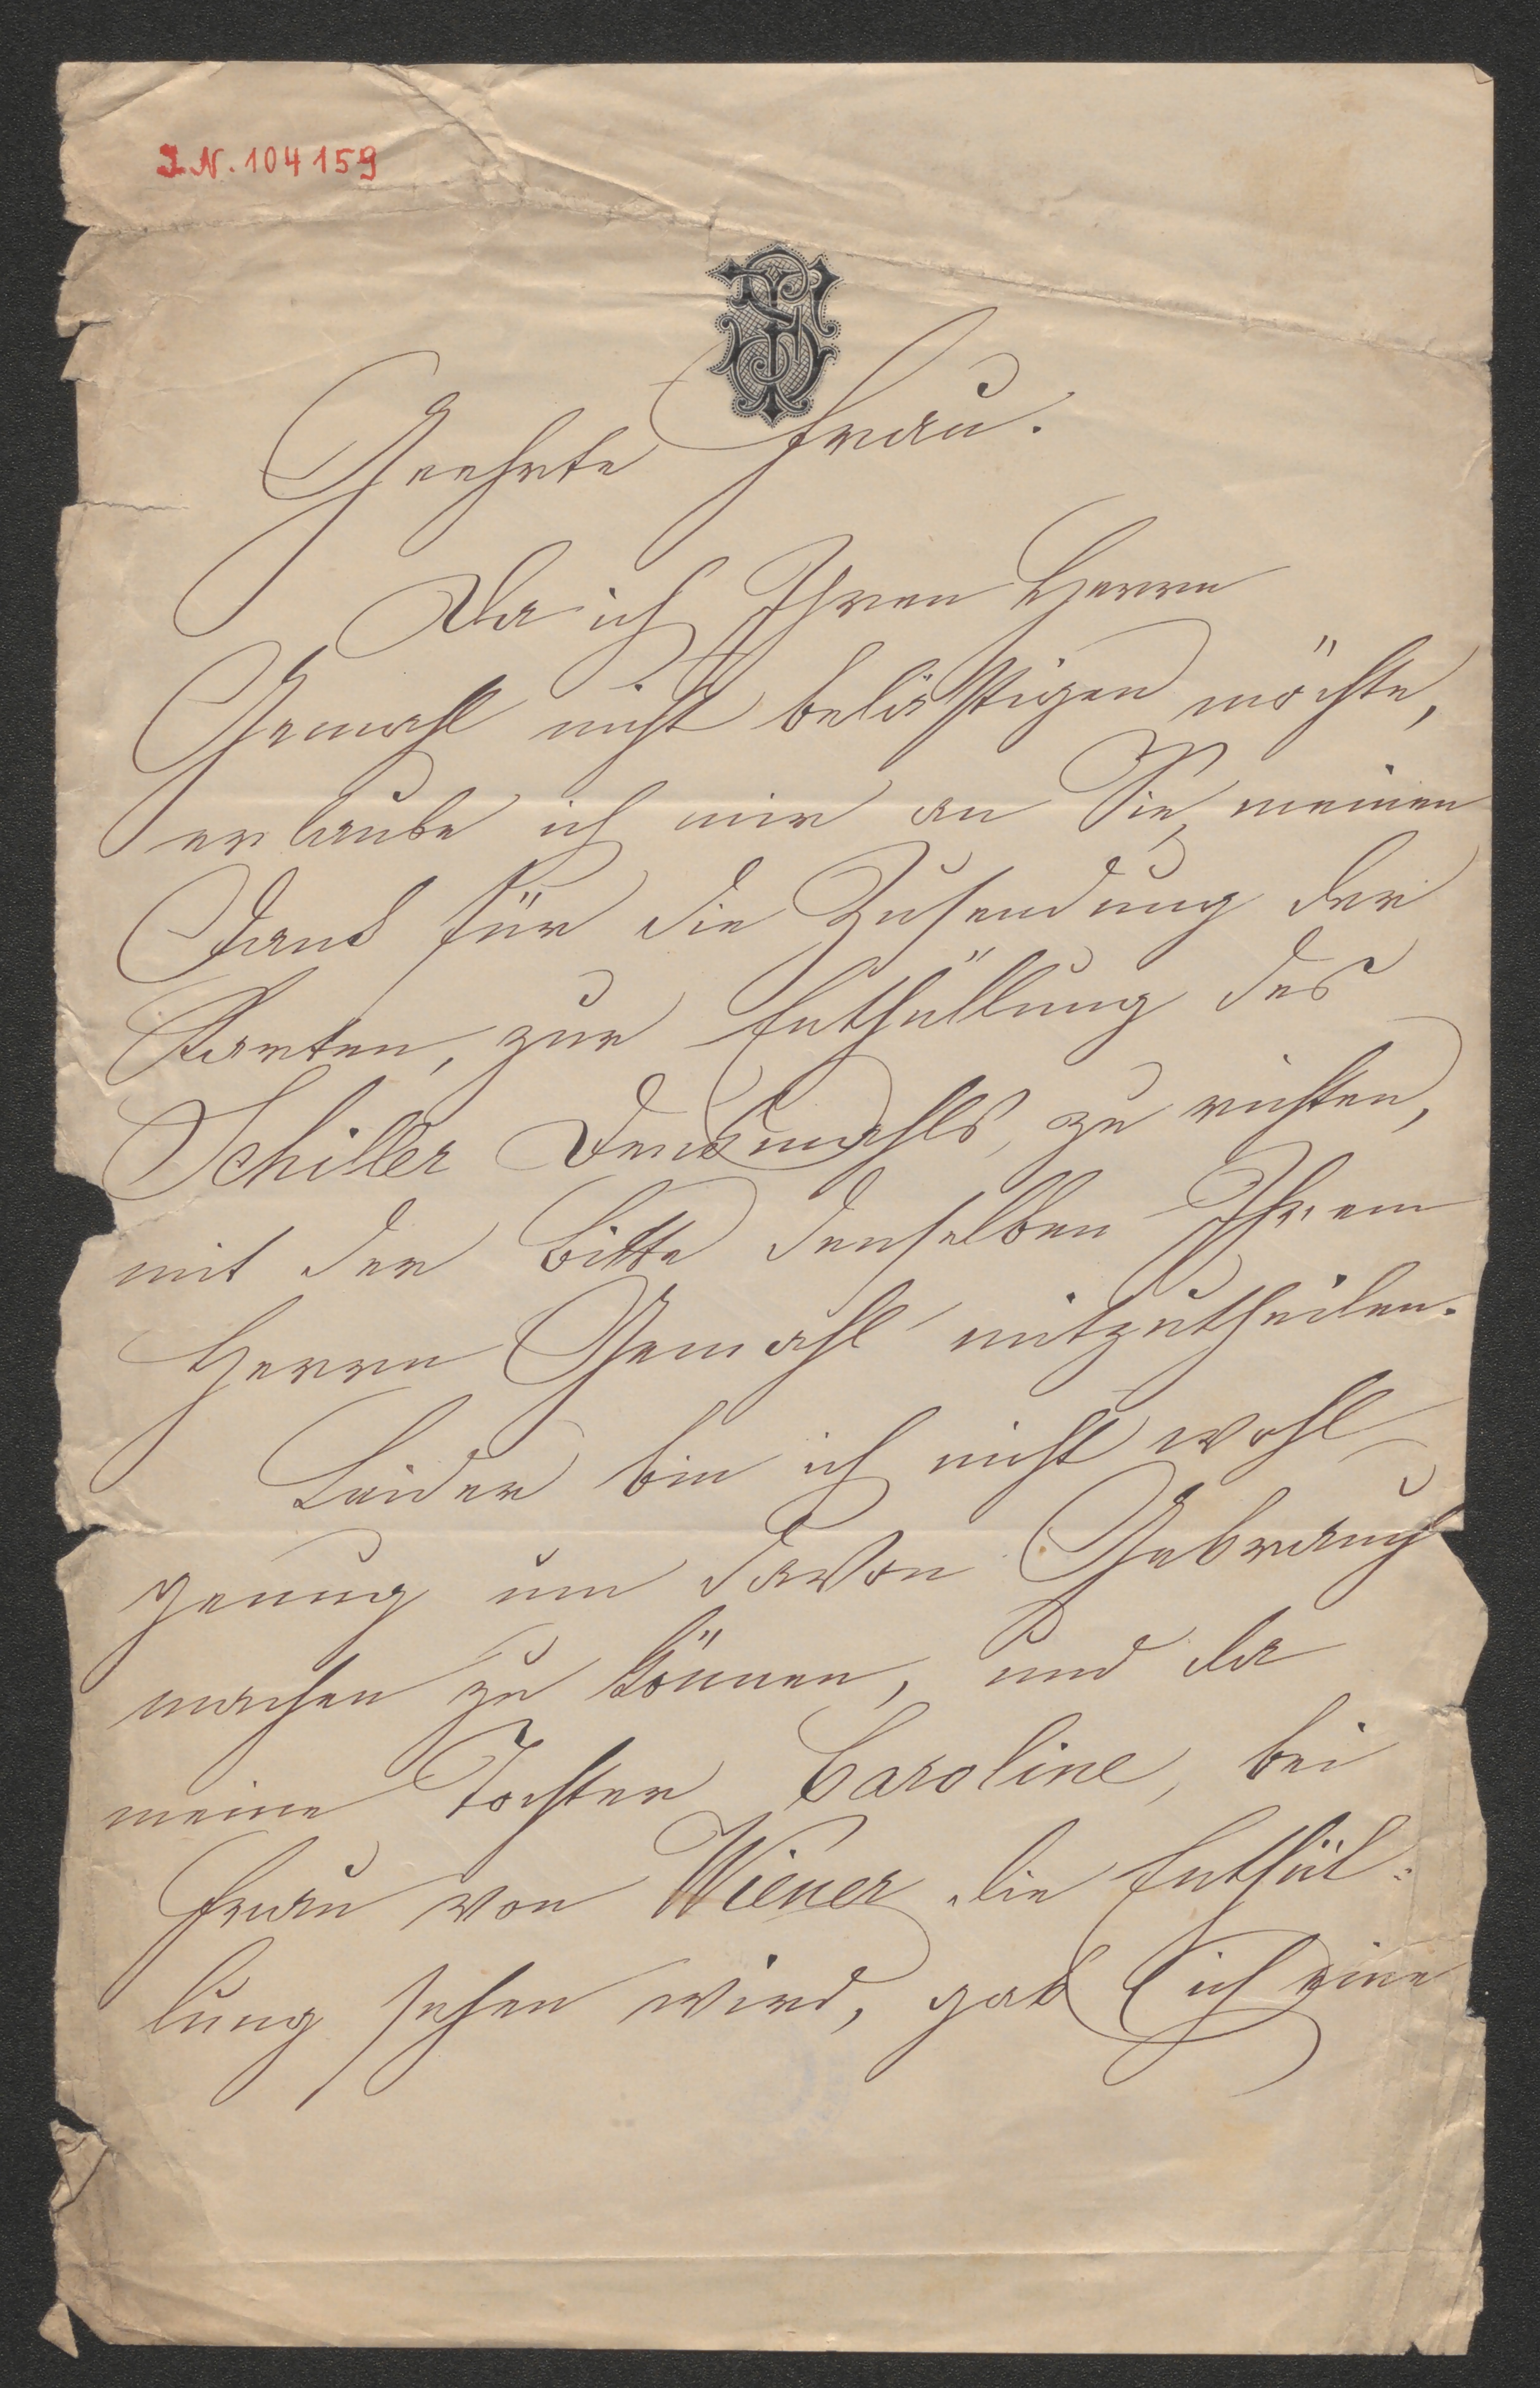 I.N. 104159
Geehrte Frau.
Da ich Ihren Herrn
Gemahl nicht belästigen möchte,
erlaube ich mir an Sie, meinen
Dank für die Zusendung der
Karten, zur Enthüllung des
Schiller Denkmahls, zu richten,
mit der Bitte denselben Ihrem
Herrn Gemahl mitzutheilen.
Leider bin ich nicht wohl
genug um davon Gebrauch
machen zu können, und da
meine Tochter Caroline, bei
Frau von Wiener die Enthül=
lung sehen wird, gab ich eine